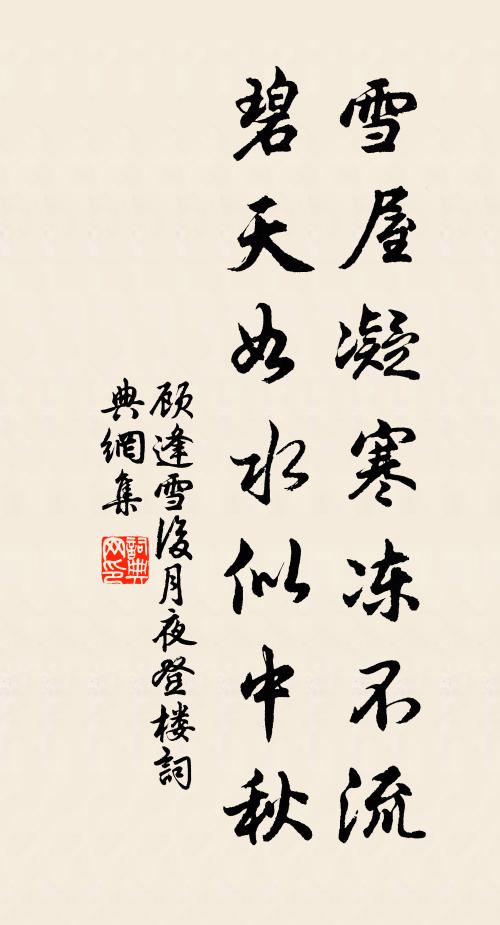 雪屋凝寒冻不流
碧天如水似中秋
顾逢雪後月夜登楼詞
典網集
詞典
网印